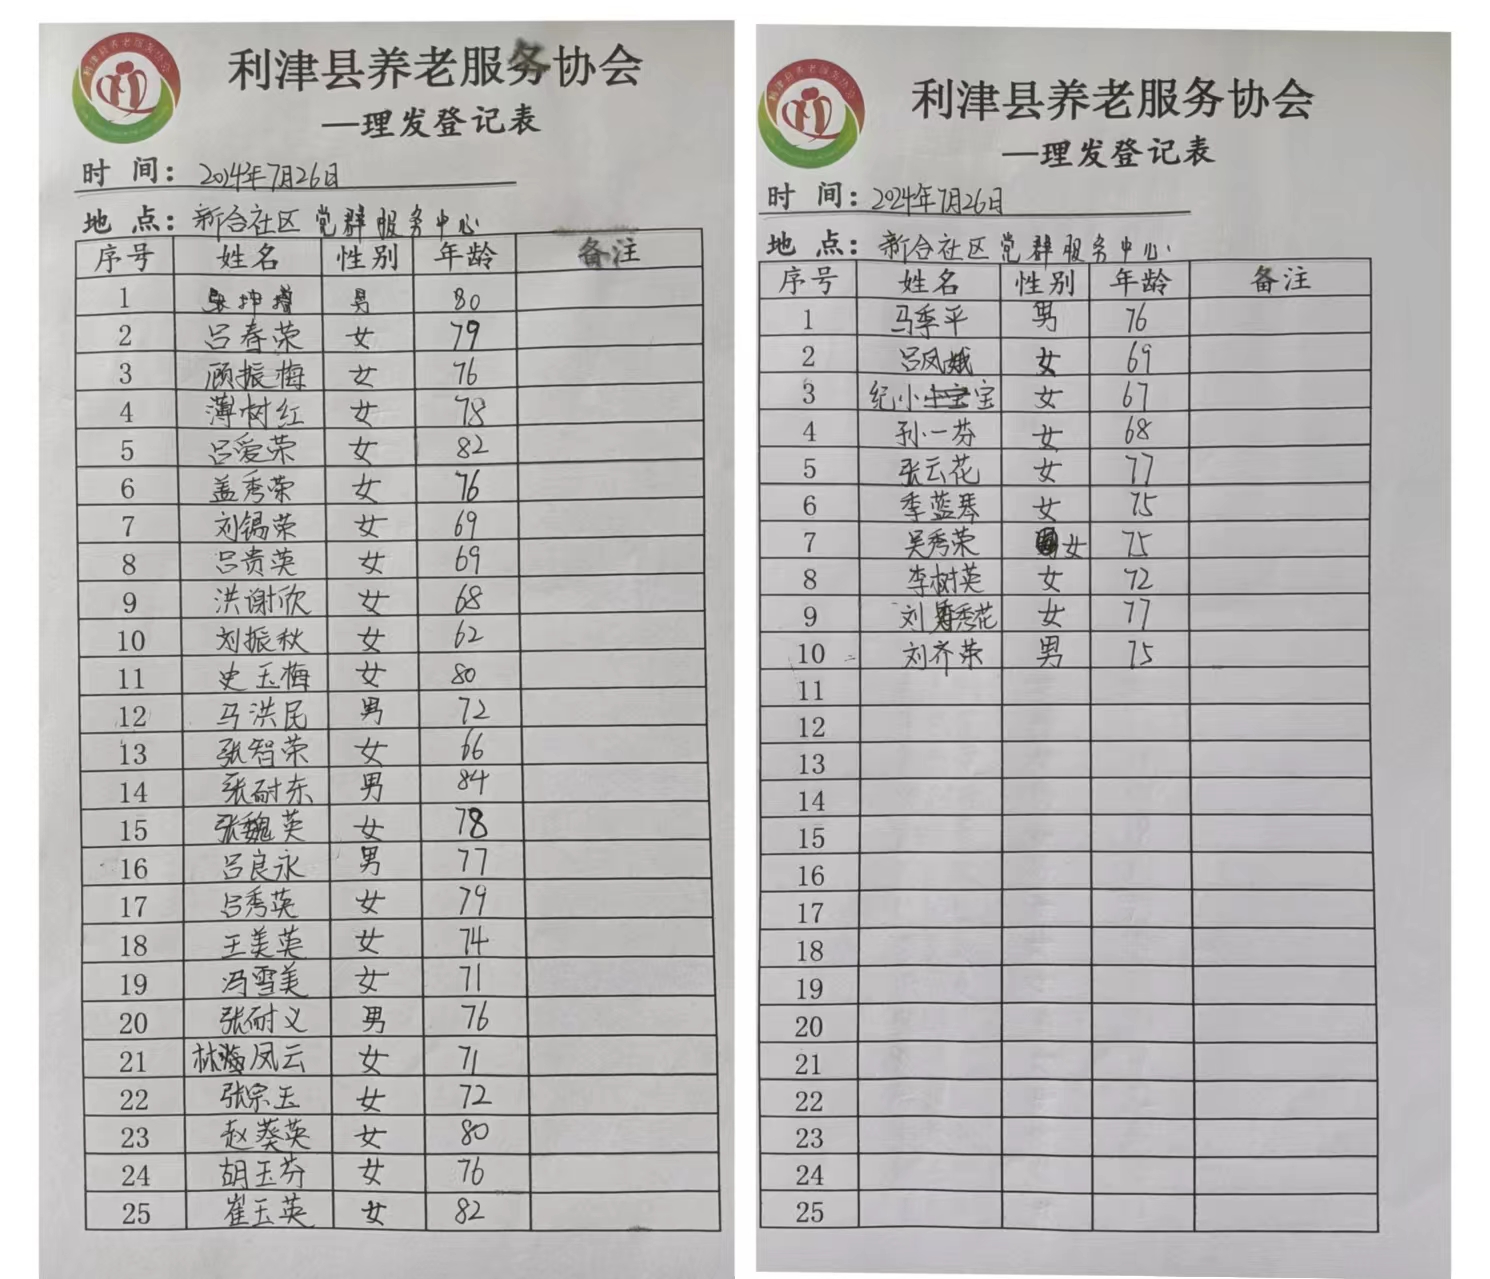 利津县养老服务协会
利津县养老服务协会
—理发登记表
时 间：2024年7月26日
地 点：新合社区党群服务中心
序号 姓名 性别 年龄 备注
1 男 80
2 吕春荣 女 79
3 顾振梅 女 76
4 薄树红 女 78
5 吕爱荣 女 82
6 盖秀荣 女 76
7 刘锡荣 女 69
8 吕贵英 女 69
9 洪谢欣 女 68
10 刘振秋 女 62
11 史玉梅 女 80
12 马洪民 男 72
13 张智荣 女 66
14 张耐东 男 84
15 张魏英 女 78
16 吕良永 男 77
17 吕秀英 女 79
18 王美英 女 74
19 冯雪美 女 71
20 张耐义 男 76
21 林凤云 女 71
22 张宗玉 女 72
23 赵葵英 女 80
24 胡玉芬 女 76
25 崔玉英 女 82
利津县养老服务协会
利津县养老服务协会
—理发登记表
时 间：2024年7月26日
地 点：新合社区党群服务中心
序号 姓名 性别 年龄 备注
1 马季平 男 76
2 吕凤娥 女 69
3 纪小宝 女 67
4 孙一芬 女 68
5 张云花 女 77
6 季蓝琴 女 75
7 吴秀荣 女 75
8 李树英 女 72
9 刘秀花 女 77
10 刘齐荣 男 75
11
12
13
14
15
16
17
18
19
20
21
22
23
24
25